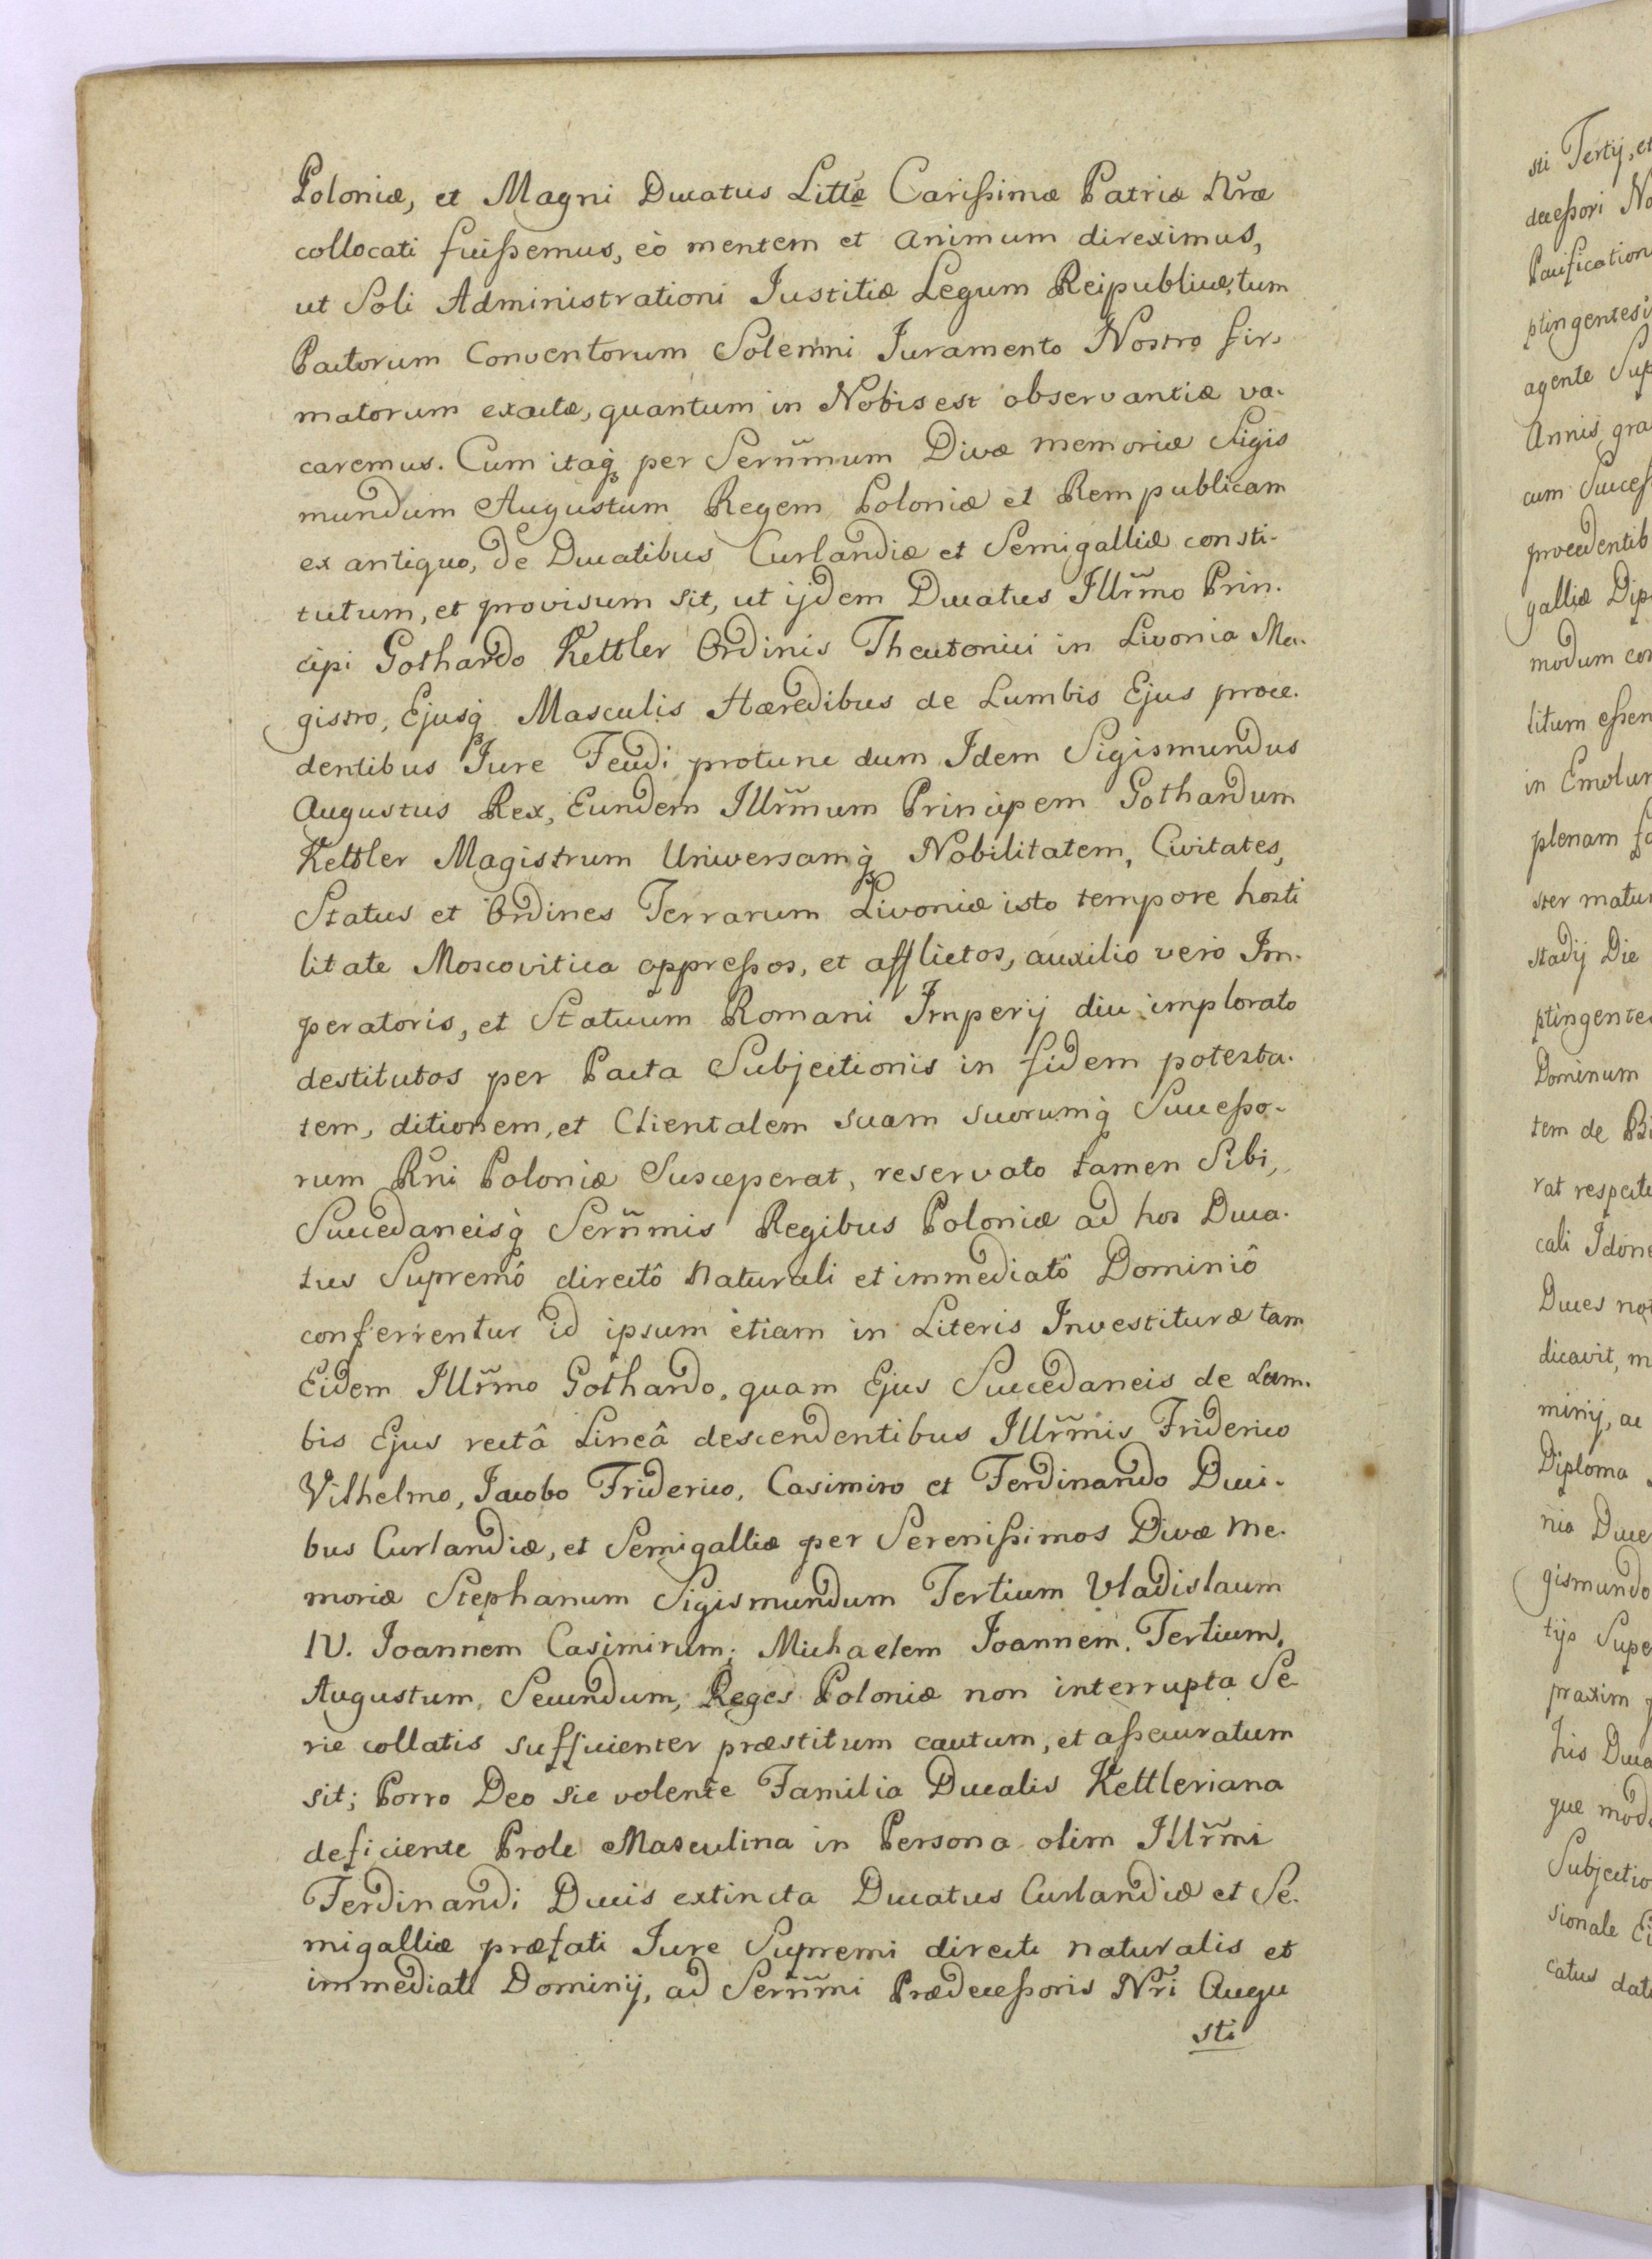 Poloniæ, et Magni Ducatus Littæ Carißimæ Patriæ Nr̃æ
collocati fuißemus, eò mentem et animum direximus,
ut Soli Administrationi Justitiæ Legum Reipublicæ, tum
Pactorum Conventorum Solemni Juramento Nostro fir-
matorum exactæ, quantum in Nobis est observantiæ va-
caremus. Cum itaq̃ per Serñmum Divæ memoriæ Sigis
mundum Augustum Regem Poloniæ et Rempublicam
ex antiquo, de Ducatibus Curlandiæ et Semigalliæ consti-
tutum, et provisum sit, ut ijdem Ducatus Illr̃mo Prin-
cipi Gothardo Kettler Ordinis Theutonici in Livonia Ma-
gistro, Ejusq̃ Masculis Hæredibus de Lumbis Ejus proce-
dentibus Jure Feudi protunc dum Idem Sigismundus
Augustus Rex, Eundem Illr̃mum Principem Gothardum
Kettler Magistrum Universamq̃ Nobilitatem, Civitates,
Status et Ordines Terrarum Livoniæ isto tempore hosti
litate Moscovitica oppreßos, et afflictos, auxilio vero Im-
peratoris, et Statuum Romani Imperij diu implorato
destitutos per Pacta Subjectionis in fidem potesta-
tem, ditionem, et Clientalem suam suorumq̃ Succeßo-
rum Rñi Poloniæ Susceperat, reservato tamen Sibi,
Succedaneisq̃ Serñmis Regibus Poloniæ ad hos Duca-
tus Supremô directô naturali et immediatô Dominiô
conferrentur id ipsum etiam in Literis Investituræ tam
Eidem Illr̃mo Gothardo, quam Ejus Succedaneis de Lum-
bis Ejus rectâ Lineâ descendentibus Illr̃mis Friderico
Vilhelmo, Jacobo Friderico, Casimiro et Ferdinando Duci-
bus Curlandiæ, et Semigalliæ per Serenißimos Divæ me-
moriæ Stephanum Sigismundum Tertium Vladislaum
IV. Joannem Casimirum; Michaelem Joannem. Tertium,
Augustum, Secundum, Reges Poloniæ non interrupta Se-
rie collatis sufficienter præstitum cautum, et aßecuratum
sit; Porro Deo sic volente Familia Ducalis Kettleriana
deficiente Prole Masculina in Persona olim Illr̃mi
Ferdinandi Ducis extincta Ducatus Curlandiæ et Se-
migalliæ præfati Jure Supremi directi naturalis et
immediati Dominij, ad Serñmi Prædeceßoris Nr̃i Augu
sti
sti Tertij, et
deceßori No
Pacification
ptingentesi
agente Sup
Annis gra
cum Succeß
procedentib
galliæ Dip
modum con
litum eßen
in Emolum
plenam fa
ster matur
stadij Die
ptingentes
Dominum
tem de Bi
rat respectu
cali Idone
Duces not
dicavit, m
minij, ac
Diploma
nia Duce
gismundo
tijs Supe
praxim
his Duca
que mod
Subjectio
sionale Ei
catus dat